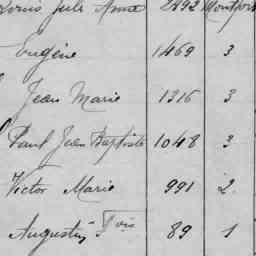 Louis Jule Anne 2492 Montpor
Eugène 1469 3
Jean Marie 1316 3
Paul Jean Baptiste 1048 3
Victor Marie 991 2
Augustin Fois 89 1